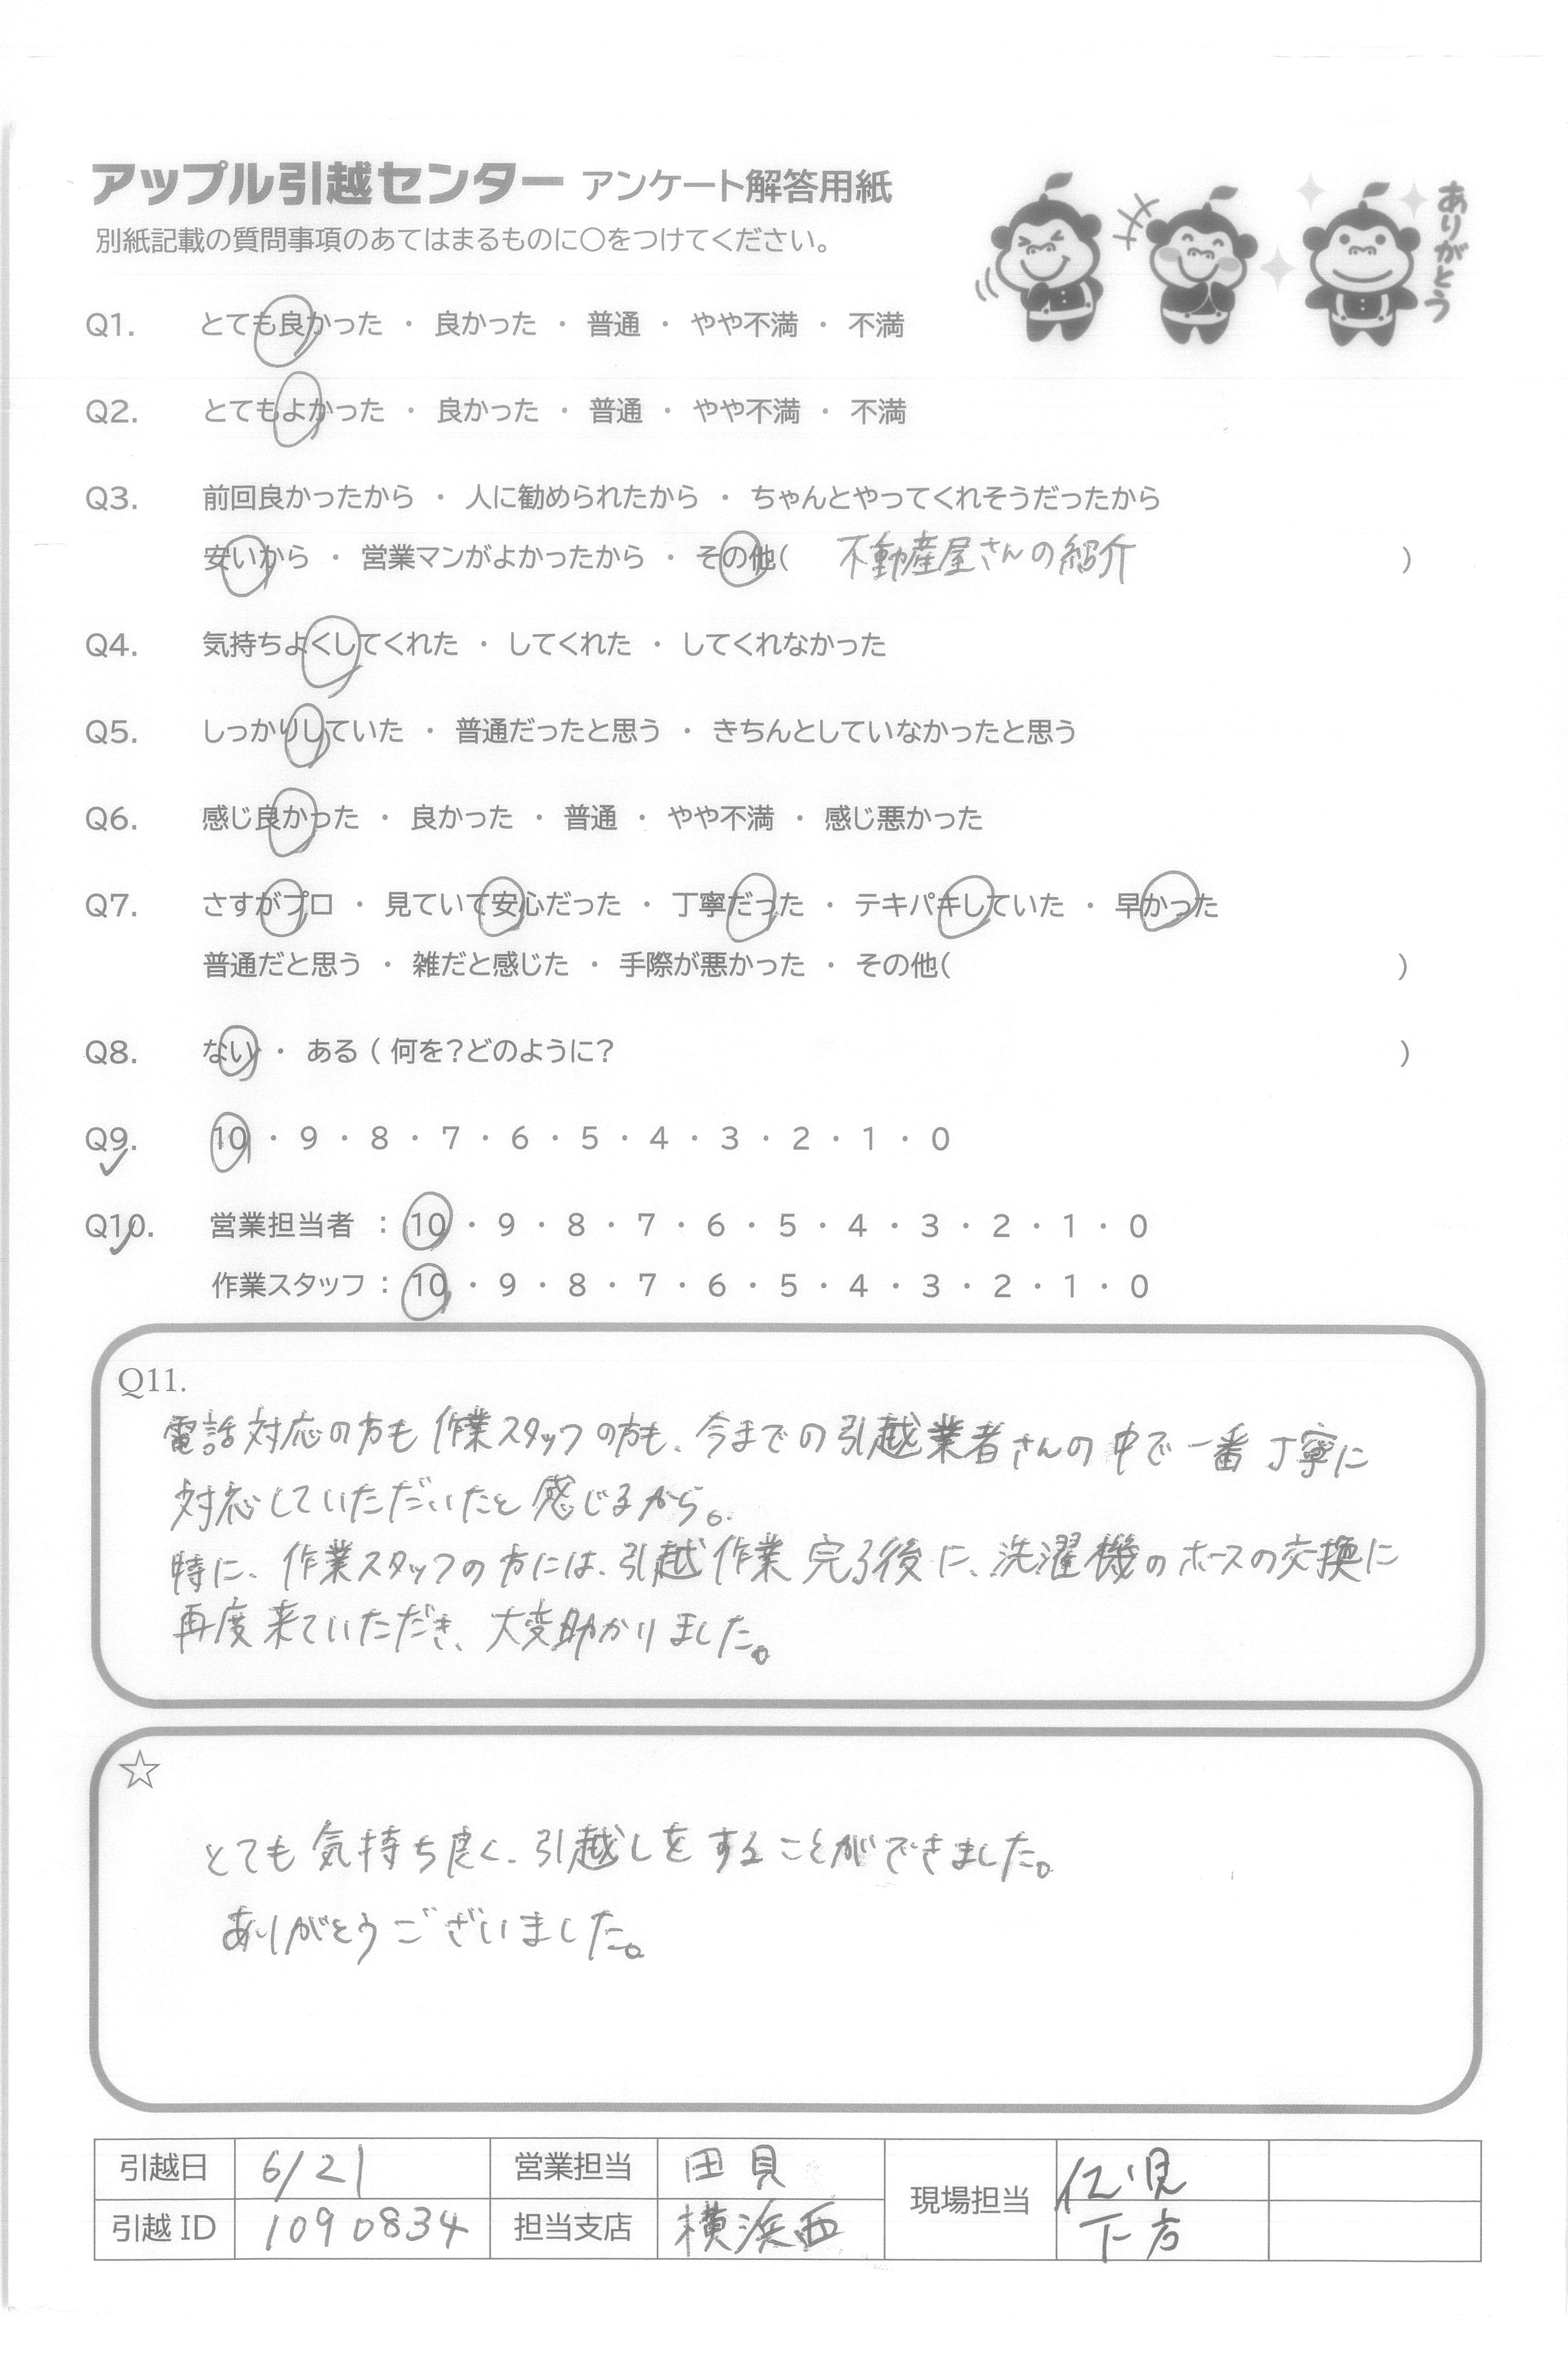 アップル引越センター アンケート解答用紙
別紙記載の質問事項のあてはまるものに〇をつけてください。
ありがとう
Q1. とても良かった ・ 良かった ・ 普通 ・ やや不満 ・ 不満
Q2. とてもよかった ・ 良かった ・ 普通 ・ やや不満 ・ 不満
Q3. 前回良かったから ・ 人に勧められたから ・ ちゃんとやってくれそうだったから
安いから ・ 営業マンがよかったから ・ その他( 不動産屋さんの紹介 )
Q4. 気持ちよくしてくれた ・ してくれた ・ してくれなかった
Q5. しっかりしていた ・ 普通だったと思う ・ きちんとしていなかったと思う
Q6. 感じ良かった ・ 良かった ・ 普通 ・ やや不満 ・ 感じ悪かった
Q7. さすがプロ ・ 見ていて安心だった ・ 丁寧だった ・ テキパキしていた ・ 早かった
普通だと思う ・ 雑だと感じた ・ 手際が悪かった ・ その他( )
Q8. ない ・ ある ( 何を?どのように? )
Q9. 10 ・ 9 ・ 8 ・ 7 ・ 6 ・ 5 ・ 4 ・ 3 ・ 2 ・ 1 ・ 0
Q10. 営業担当者 : 10 ・ 9 ・ 8 ・ 7 ・ 6 ・ 5 ・ 4 ・ 3 ・ 2 ・ 1 ・ 0
作業スタッフ : 10 ・ 9 ・ 8 ・ 7 ・ 6 ・ 5 ・ 4 ・ 3 ・ 2 ・ 1 ・ 0
Q11.
電話対応の方も作業スタッフの方も、今までの引越業者さんの中で一番丁寧に
対応していただいたと感じるから。
特に、作業スタッフの方には、引越作業完了後に、洗濯機のホースの交換に
再度来ていただき、大変助かりました。
☆
とても気持ち良く、引越しをすることができました。
ありがとうございました。
引越日 6/21 営業担当 田貝 現場担当
引越ID 1090834 担当支店 横浜西 下方